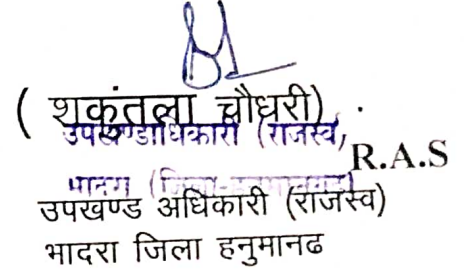 ( शकुंतला चौधरी)
उपखण्डाधिकारी (राजस्व)
R.A.S
भादरा (जिला-हनुमानगढ)
उपखण्ड अधिकारी (राजस्व)
भादरा जिला हनुमानढ